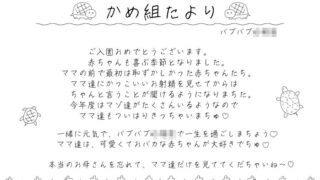 かめ組たより
バブバブ
ご入園おめでとうございます。
赤ちゃんも喜ぶ季節となりました。
ママの前で最初は恥ずかしかった赤ちゃんたち。
ママ達にかっこいいお射精を見せてからは
ちゃんと言うことが聞けるようになりました。
今年度はマゾ達がたくさんいるようなので
ママ達もついはりきっちゃいまちゅ♡
一緒に元気で、バブバブで一生を過ごしまちょう♡
ママ達は、可愛くておバカな赤ちゃんが大好きでちゅ♡
本当のお母さんを忘れて、ママ達だけを見ててくだちゃいね～♡